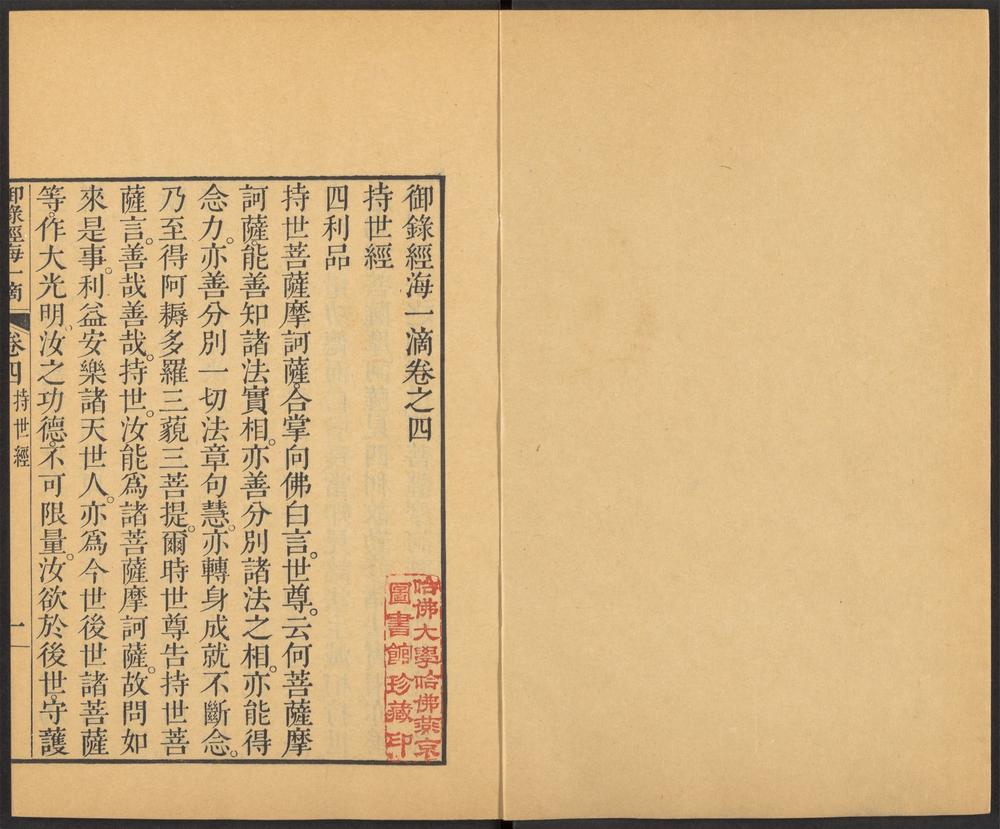 御錄經海一滴卷之四
持世經
四利品
持世菩薩摩訶薩。合掌向佛白言。世尊。云何菩薩摩
訶薩。能善知諸法實相。亦善分別諸法之相。亦能得
念力。亦善分別一切法章句慧。亦轉身成就不斷念。
乃至得阿耨多羅三藐三菩提。爾時世尊告持世菩
薩言。善哉善哉。持世。汝能爲諸菩薩摩訶薩。故問如
來是事。利益安樂諸天世人。亦爲今世後世諸菩薩
等。作大光明。汝之功德。不可限量。汝欲於後世。守護
御錄經海一滴 卷四 持世經 一
哈佛大學哈佛燕京
圖書館珍藏印